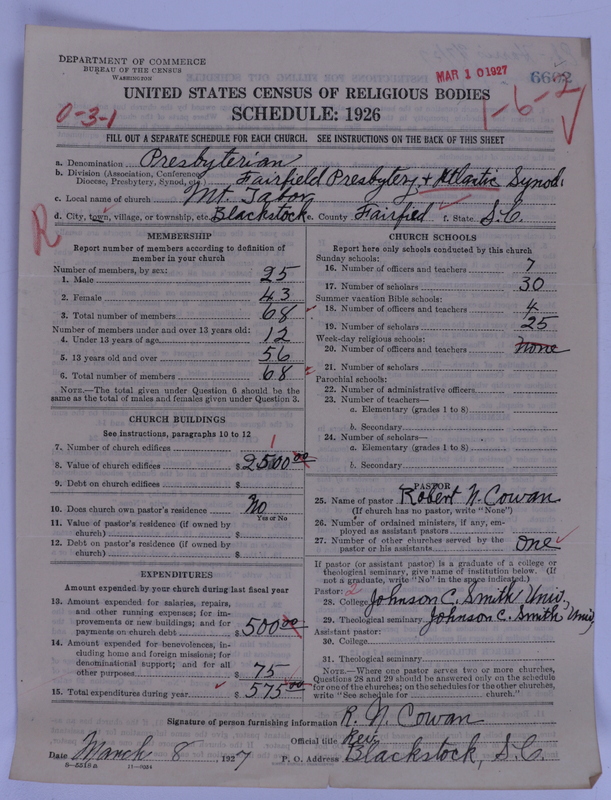 DEPARTMENT OF COMMERCE
BUREAU OF THE CENSUS
WASHINGTON
MAR 10 1927
6602
UNITED STATES CENSUS OF RELIGIOUS BODIES
SCHEDULE: 1926
0-3-1
1-6-2
FILL OUT A SEPARATE SCHEDULE FOR EACH CHURCH. SEE INSTRUCTIONS ON THE BACK OF THIS SHEET
a. Denomination Presbyterian
b. Division (Association, Conference, Diocese, Presbytery, Synod, etc.) Fairfield Presbytery, + Atlantic Synod.
c. Local name of church Mt. Tabor
d. City, town, village, or township, etc. Blackstock e. County Fairfield f. State S.C.
R
MEMBERSHIP
Report number of members according to definition of
member in your church
Number of members, by sex:
1. Male 25
2. Female 43
3. Total number of members 68
Number of members under and over 13 years old:
4. Under 13 years of age 12
5. 13 years old and over 56
6. Total number of members 68
NOTE.—The total given under Question 6 should be
same as the total of males and females given under Question 3.
CHURCH BUILDINGS
See instructions, paragraphs 10 to 12
7. Number of church edifices 1
8. Value of church edifices $2500 00
9. Debt on church edifices $
10. Does church own pastor's residence No
Yes or No
11. Value of pastor's residence (if owned by
church) $
12. Debt on pastor's residence (if owned by
church) $
EXPENDITURES
Amount expended by your church during last fiscal year
13. Amount expended for salaries, repairs,
and other running expenses; for im-
provements or new buildings; and for
payments on church debt $500 00
14. Amount expended for benevolences, in-
cluding home and foreign missions; for
denominational support; and for all
other purposes $75
15. Total expenditures during year $575 00
CHURCH SCHOOLS
Report here only schools conducted by this church
Sunday schools:
16. Number of officers and teachers 7
17. Number of scholars 30
Summer vacation Bible schools:
18. Number of officers and teachers 4
19. Number of scholars 25
Week-day religious schools:
20. Number of officers and teachers None
21. Number of scholars
Parochial schools:
22. Number of administrative officers
23. Number of teachers—
a. Elementary (grades 1 to 8)
b. Secondary
24. Number of scholars—
a. Elementary (grades 1 to 8)
b. Secondary
PASTOR
25. Name of pastor Robert N. Cowan
(If church has no pastor, write "None")
26. Number of ordained ministers, if any, em-
ployed as assistant pastors
27. Number of other churches served by the
pastor or his assistants One
If pastor (or assistant pastor) is a graduate of a college or
theological seminary, give name of institution below. (If
not a graduate, write "No" in the space indicated.)
Pastor: 2
28. College Johnson C. Smith Univ.
29. Theological seminary Johnson C. Smith Univ.
Assistant pastor:
30. College
31. Theological seminary
NOTE.—Where one pastor serves two or more churches,
Questions 28 and 29 should be answered only on the schedule
for one of the churches; on the schedules for the other churches,
write "See schedule for church."
Signature of person furnishing information R. N. Cowan
Official title Rev.
Date March 8, 1927 P. O. Address Blackstock, S.C.
8-5318a 11-9034